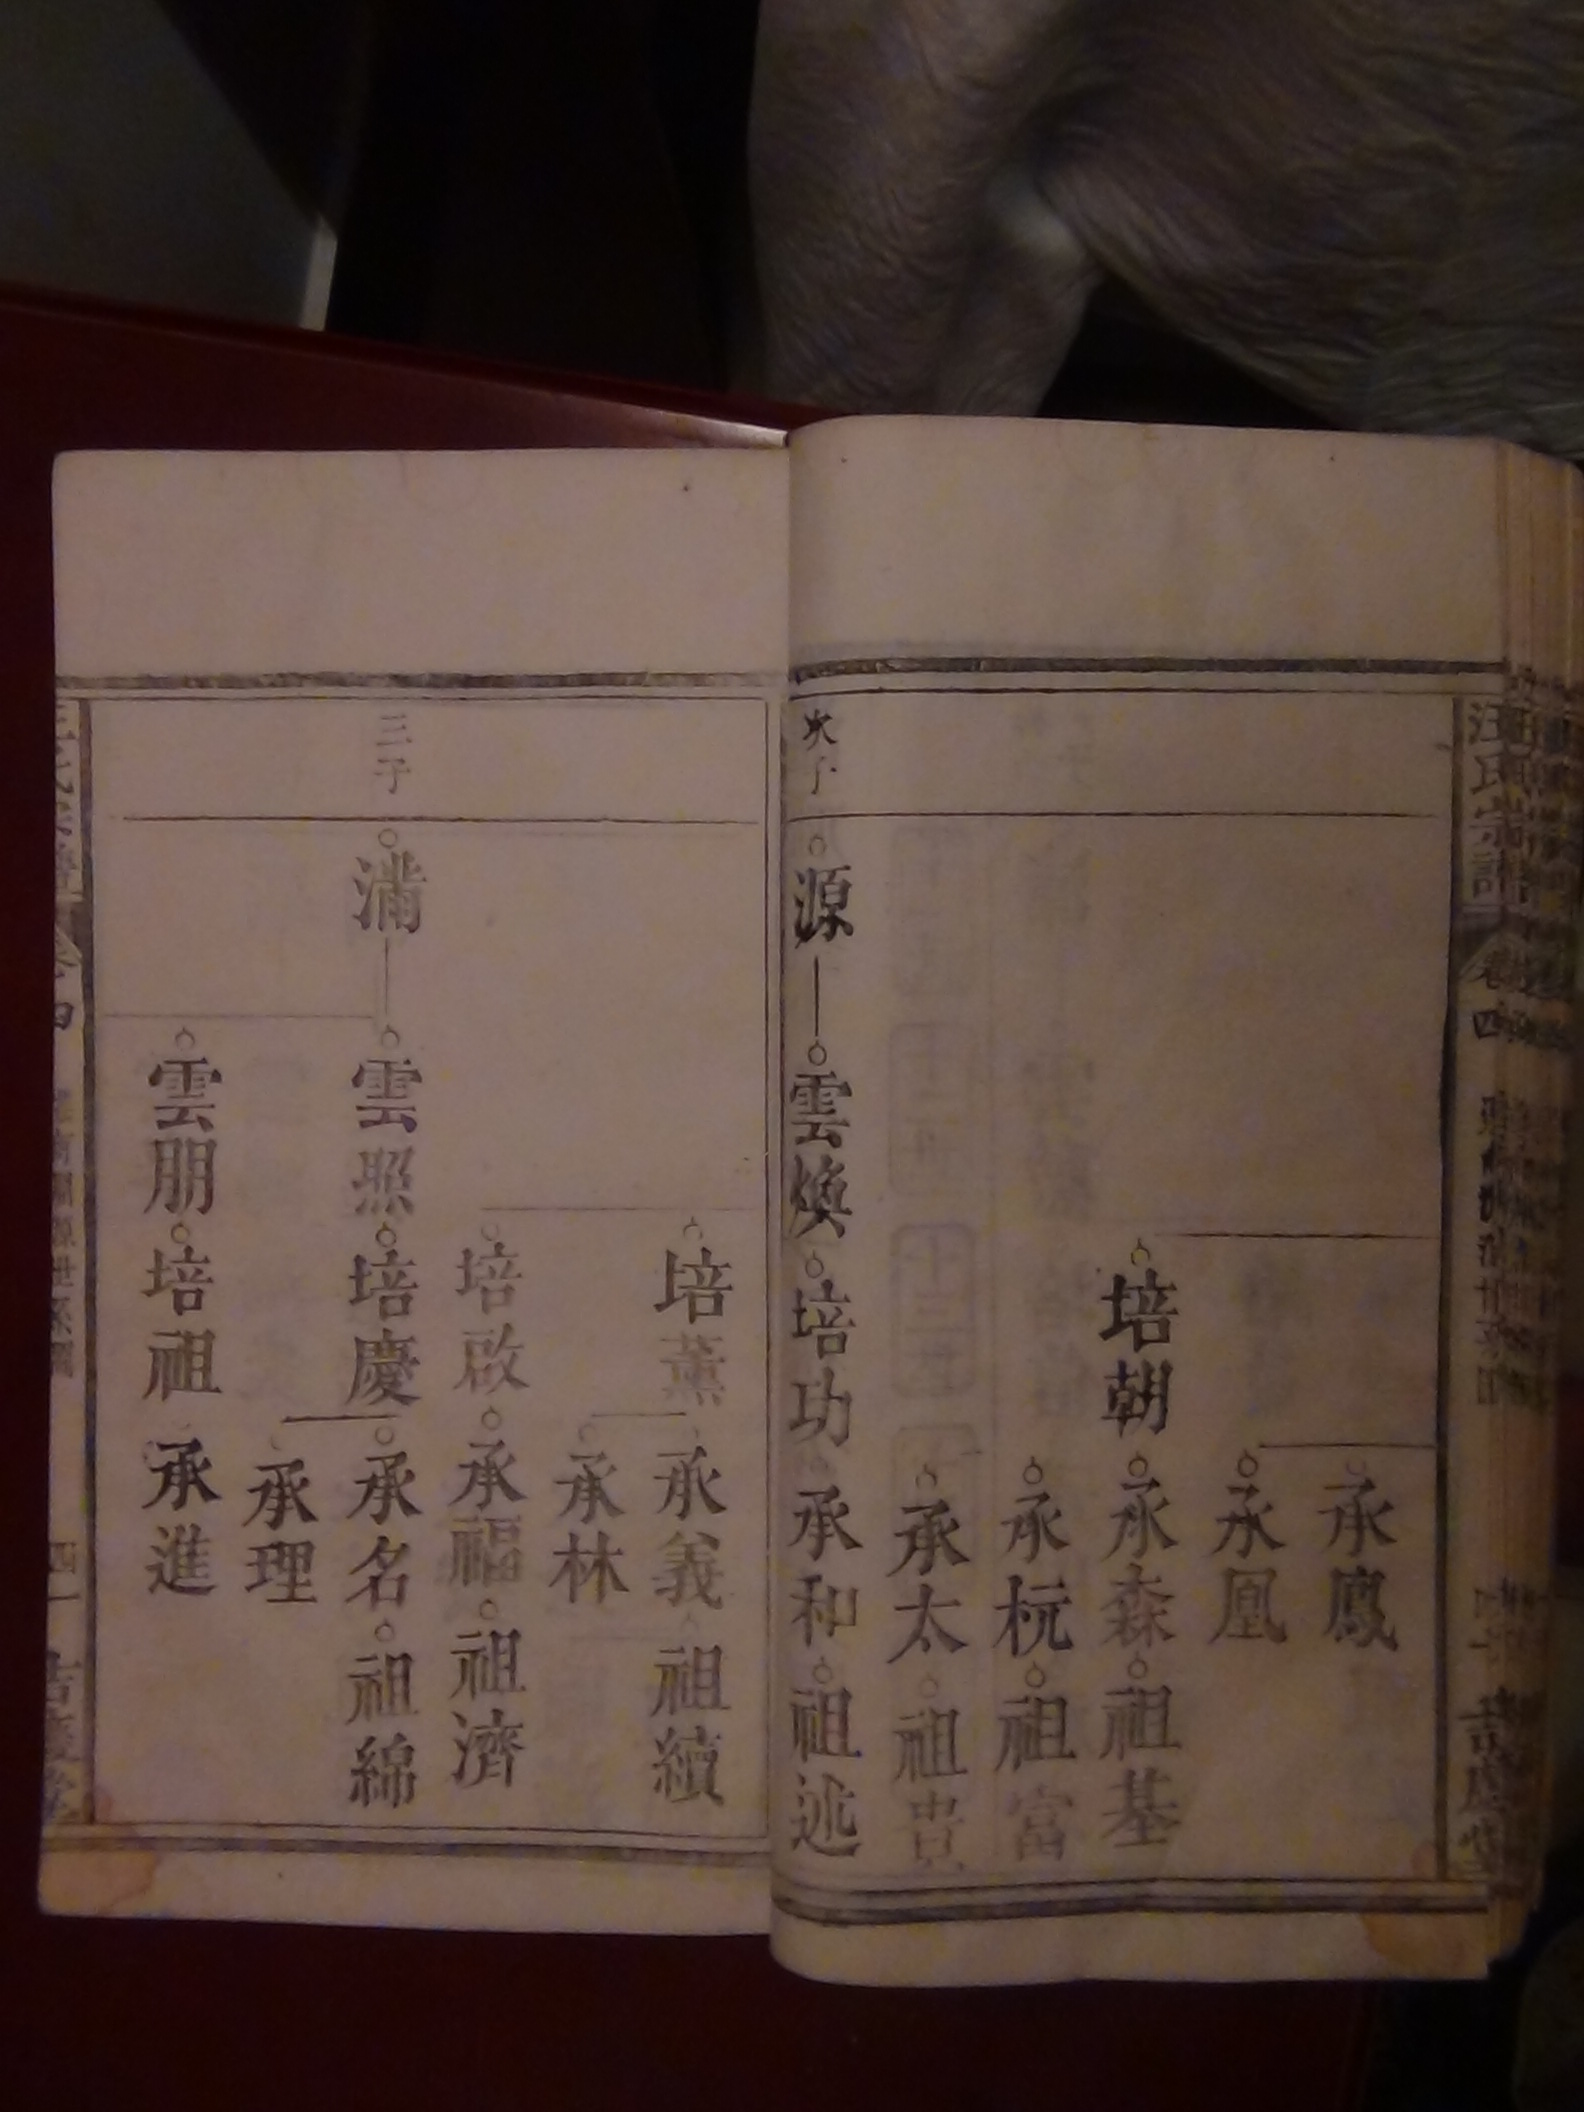 汪氏宗譜
卷四
承鳳
承凰
培朝
承森
祖基
承杬
祖富
承太
祖貴
次子
源
雲煥
培功
承和
祖述
培薰
承義
祖續
承林
培啟
承福
祖濟
三子
滿
雲照
培慶
承名
祖綿
承理
雲朋
培祖
承進